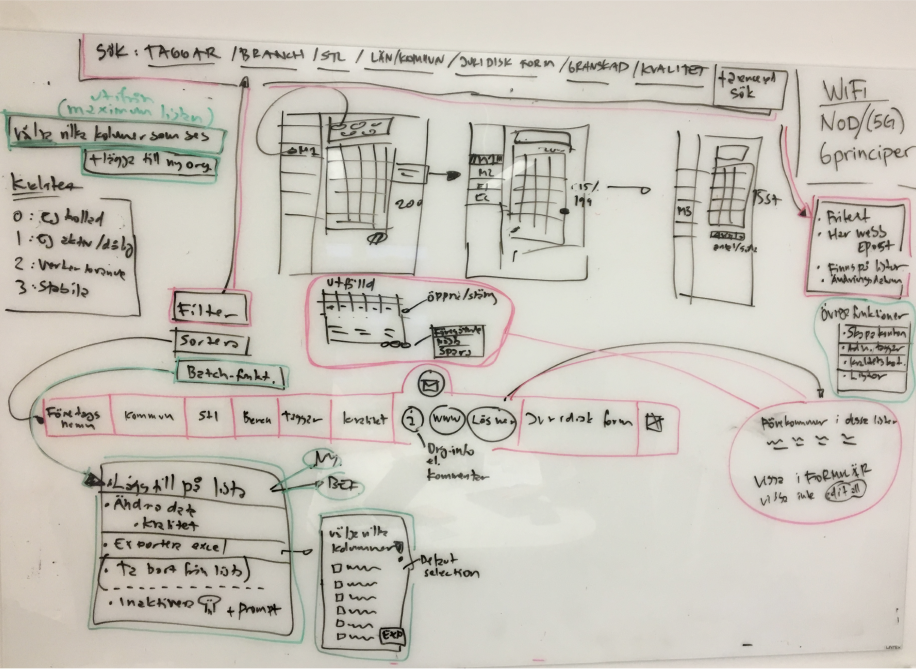 SÖK: TAGGAR /BRANCH/STL/ LÄN/KOMMUN/JURIDISK FORM/GRANSKAD/KVALITET
+avancerad
sök
WiFi
NOD/(5G)
6principer
utifrån
(maximum listan)
välja vilka kolumner som ses
+lägga till ny org
Kvalitet
0: Ej kollad
1: Ej aktiv/dålig
2: Verkar
3: Stabila
M1
200
M1
M2
E1
15%
199
M3
155st
antal/sida
• Fritext
• Har webb
Epost
• Finns på listor
• Ändringsdatum
Filter
Sortera
Batch-funkt.
Utfälld
öppna/stäng
Spara
Övriga funktioner
• Skapa konton
• Adm. taggar
• Listor
Företags
namn
Kommun
STL
Bransch
taggar
kvalitet
i
www
Läs mer
Juridisk form
Org-info
el.
Kommentar
Förekommer i dessa listor
Vissa i FORMULÄR
vissa inte
• Lägg till på lista
Ny
BEF
• Ändra data
• Kvalitet
• Exportera excel
• Ta bort från lista)
• Inaktivera + prompt
välja vilka
kolumner
Default
selection
EXP